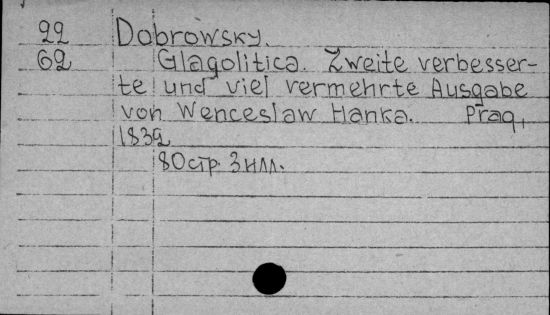 22 Dobrowsky.
62 Glagolitica. Zweite verbesser-
te und viel vermehrte Ausgabe
von Wenceslaw Hanka. Prag,
1832
80 стр. 3 илл.